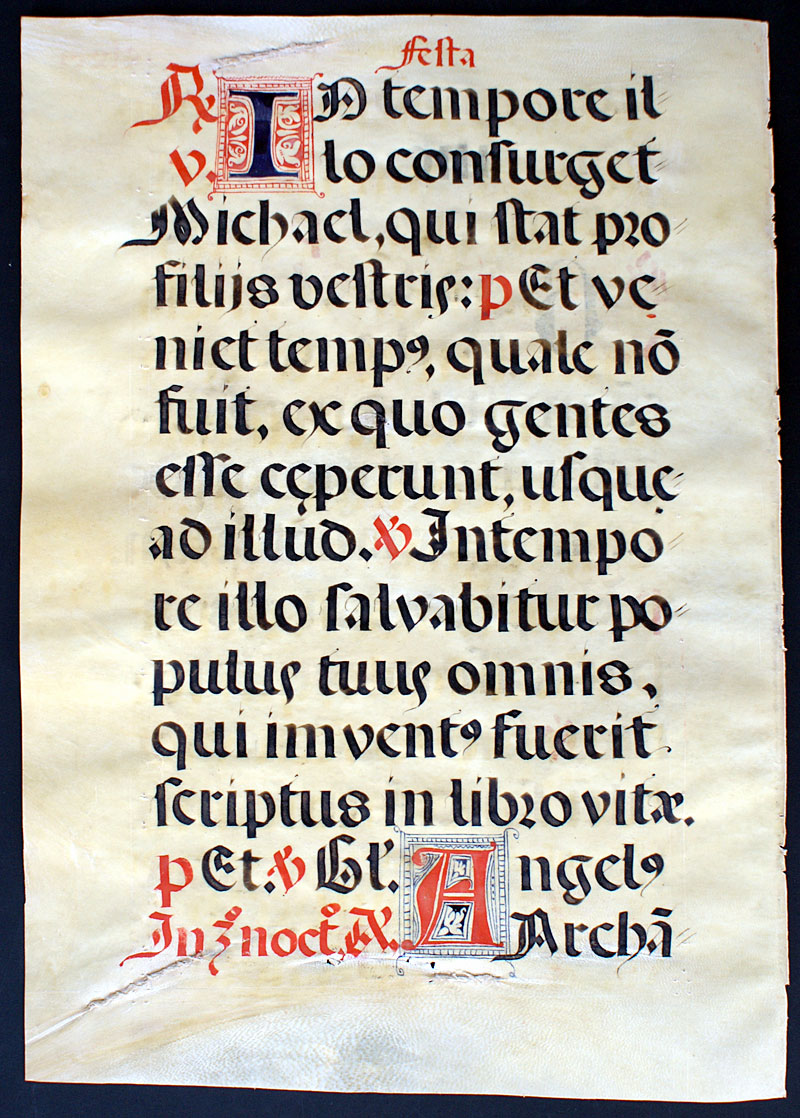 Festa
℟ IN tempore il
v. lo conſurget
Michael, qui ſtat pro
filijs veſtris: p Et ve
niet tempꝰ, quale nõ
fuit, ex quo gentes
eſſe cęperunt, uſque
ad illud. ℣ In tempo
re illo ſalvabitur po
pulus tuus omnis,
qui imventꝰ fuerit
ſcriptus in libro vitæ.
p Et. ℣ Gl'. Angelꝰ
In 3º noctº. Aña. Archã